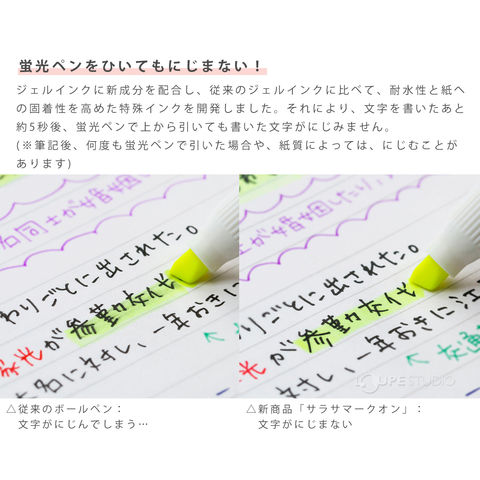 蛍光ペンをひいてもにじまない！
ジェルインクに新成分を配合し、従来のジェルインクに比べて、耐水性と紙へ
の固着性を高めた特殊インクを開発しました。それにより、文字を書いたあと
約5秒後、蛍光ペンで上から引いても書いた文字がにじみません。
(※筆記後、何度も蛍光ペンで引いた場合や、紙質によっては、にじむことが
あります)
名同士が婚姻し
婚姻したり」
わりごとに出された。
家光が参勤交代
大名に対し、一年おきに
りごとに出された。
光が参勤交代
対し、一年おきに江
交通
KUPE STUDIO
△従来のボールペン：
文字がにじんでしまう…
△新商品「サラサマークオン」：
文字がにじまない